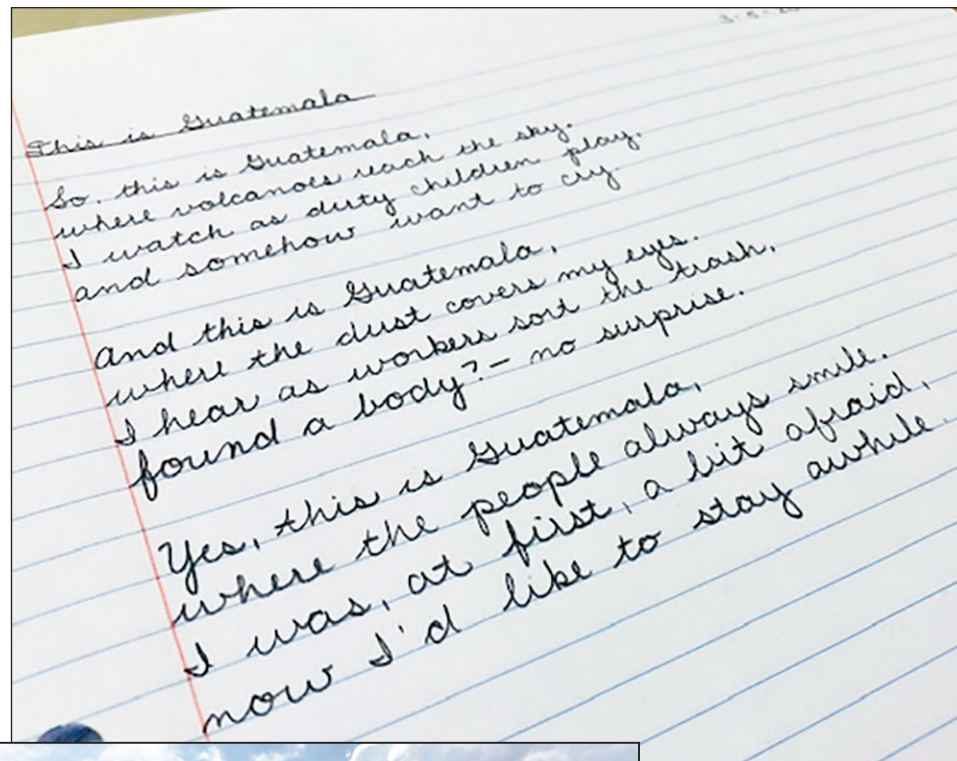 This is Guatemala
So, this is Guatemala,
where volcanoes reach the sky.
I watch as dirty children play.
and somehow want to cry.
And this is Guatemala,
where the dust covers my eyes.
I hear as workers sort the trash,
found a body?- no surprise.
Yes, this is Guatemala,
where the people always smile.
I was, at first, a bit afraid,
now I'd like to stay awhile.